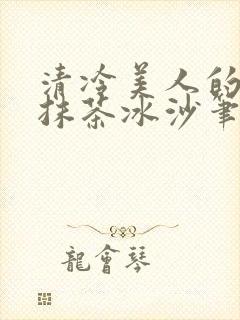 清冷美人的
抹茶冰沙筆
龍會琴